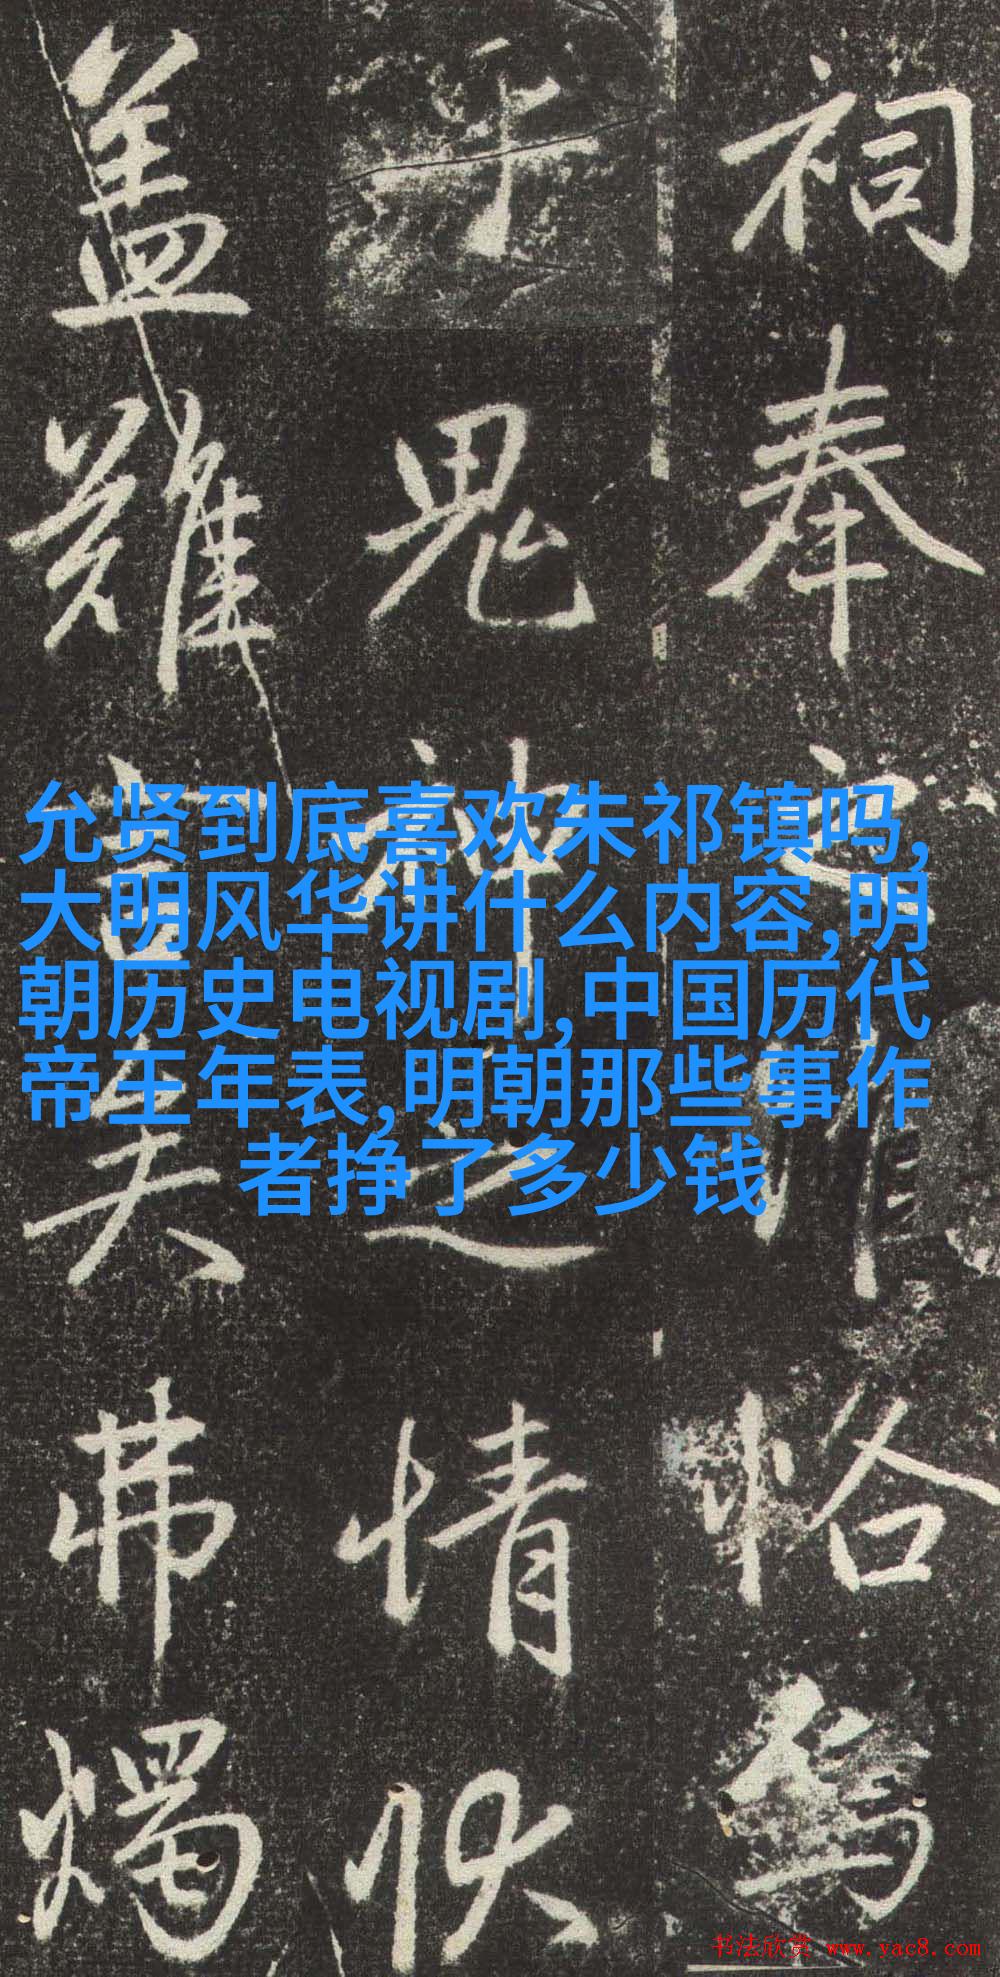 祠奉之惟恪焉
于鬼神之情状
盖难言矣弗烛
允贤到底喜欢朱祁镇吗,
大明风华讲什么内容,明
朝历史电视剧,中国历代
帝王年表,明朝那些事作
者挣了多少钱
书法欣赏 www.yac8.com